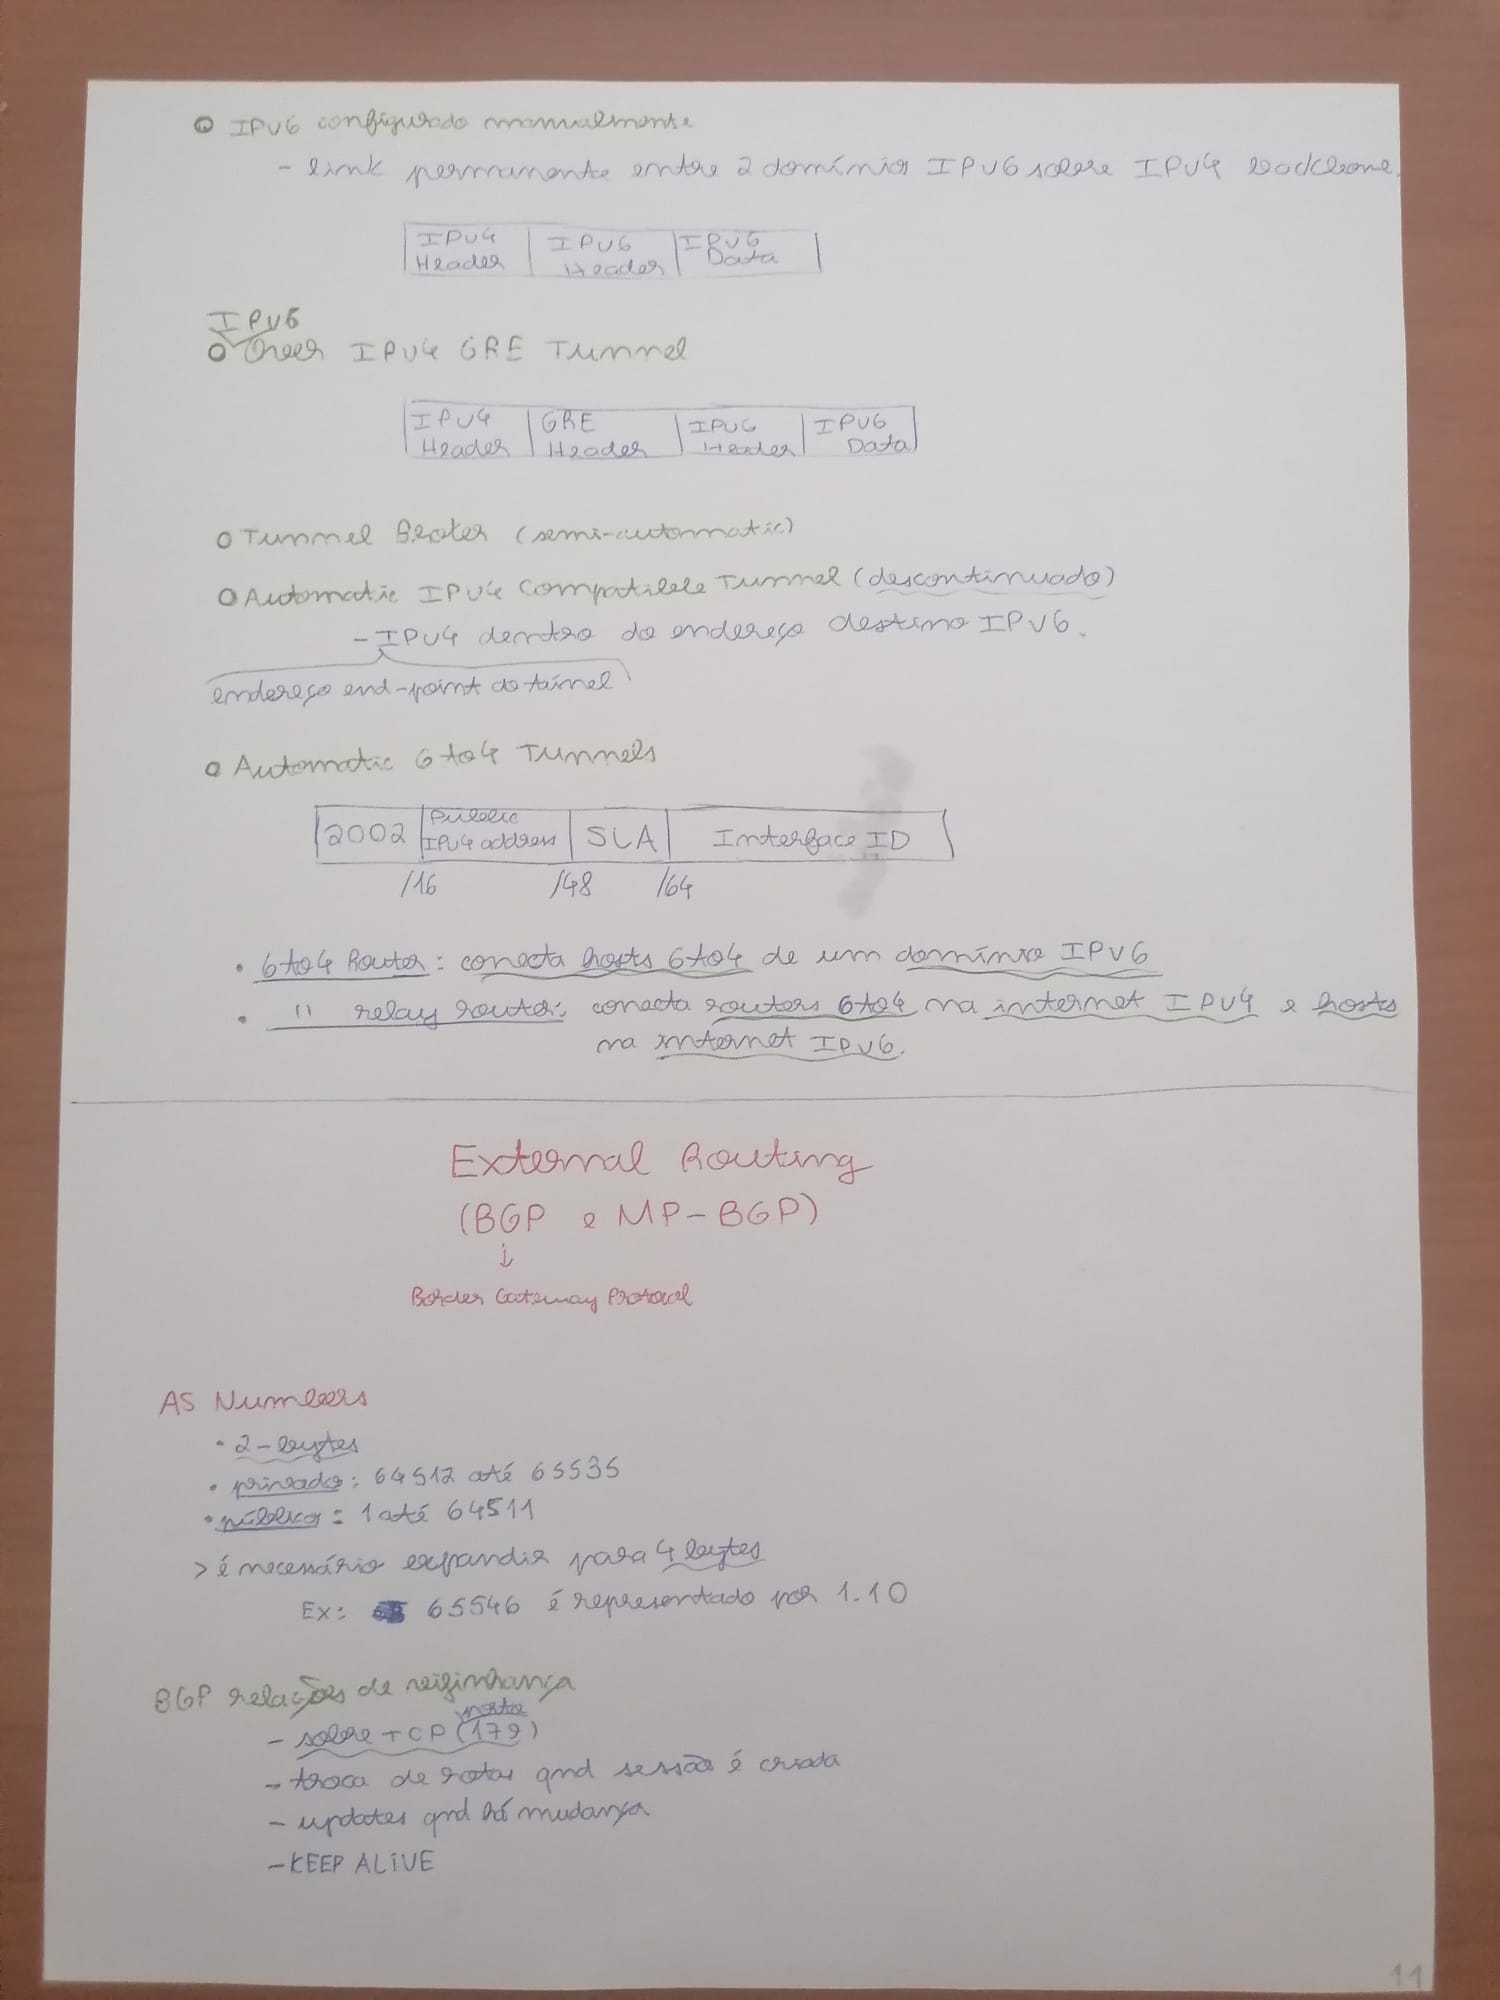 IPv6 configurado manualmente
- link permanente entre 2 domínios IPv6 sobre IPv4 backbone.
IPv4 Header | IPv6 Header | IPv6 Data
IPv6
Over IPv4 GRE Tunnel
IPv4 Header | GRE Header | IPv6 Header | IPv6 Data
Tunnel Broker (semi-automatic)
Automatic IPv4 Compatible Tunnel (descontinuado)
- IPv4 dentro do endereço destino IPv6.
endereço end-point do túnel
Automatic 6to4 Tunnels
2002 | Public IPv4 address | SLA | Interface ID
/16 /48 /64
• 6to4 Router: conecta hosts 6to4 de um domínio IPv6
• " relay router: conecta routers 6to4 na internet IPv4 e hosts
na internet IPv6.
External Routing
(BGP e MP-BGP)
↓
Border Gateway Protocol
AS Numbers
• 2-bytes
• privado: 64512 até 65535
• público: 1 até 64511
> é necessário expandir para 4 bytes
Ex: 65546 é representado por 1.10
BGP relações de vizinhança
porta
- sobre TCP (179)
- troca de rotas qnd sessão é criada
- updates qnd há mudança
- KEEP ALIVE
11